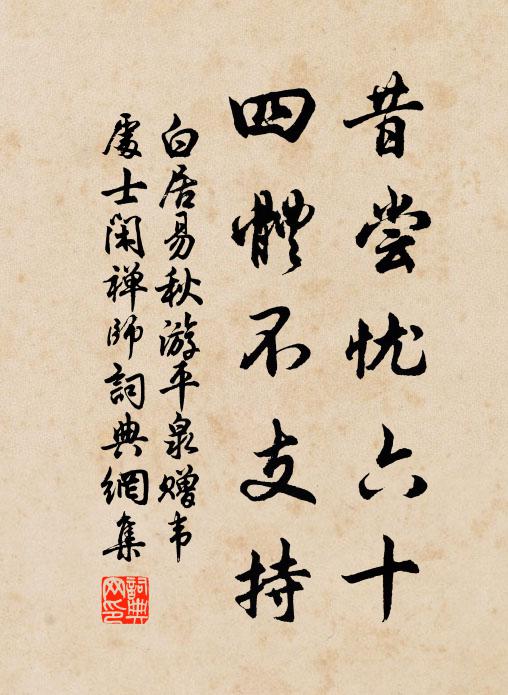 昔尝忧六十
四體不支持
白居易秋游平泉赠韦
處士閑禅師詞典網集
詞典
网印